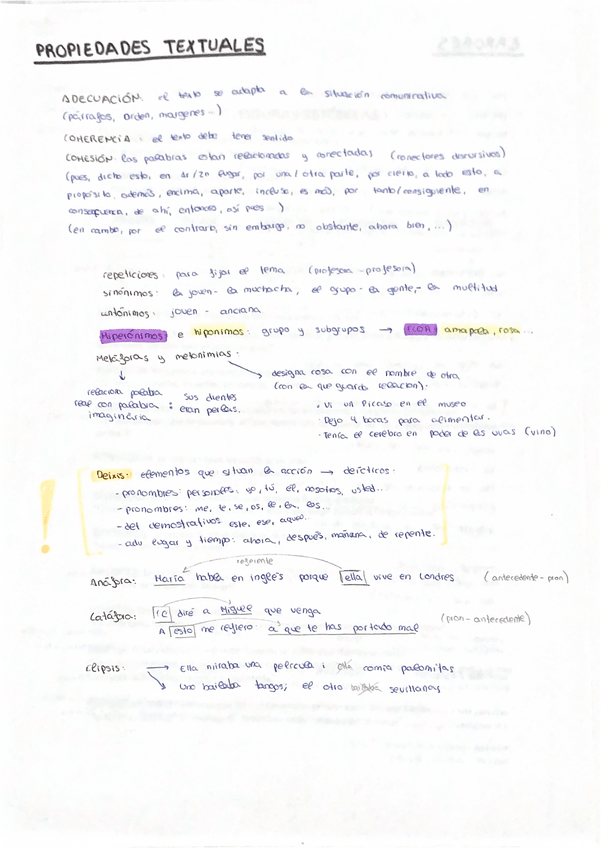 PROPIEDADES TEXTUALES
ADECUACIÓN: el texto se adapta a la situación comunicativa
(párrafos, orden, margenes...)
COHERENCIA: el texto debe tener sentido
COHESIÓN: las palabras estan relacionadas y conectadas (conectores discursivos)
(pues, dicho esto, en 1r/2n lugar, por una/otra parte, por cierto, a todo esto, a
propósito, además, encima, aparte, incluso, es más, por tanto/consiguiente, en
consecuencia, de ahí, entonces, así pues...)
(en cambio, por el contrario, sin embargo, no obstante, ahora bien, ...)
repeticiones: para fijar el tema (profesora - profesora)
sinónimos: la joven - la muchacha, el grupo - la gente, - la multitud
antónimos: joven - anciana
Hiperónimos e hiponimos: grupo y subgrupos → FLOR: amapola, rosa...
Metáforas y metonimias:
designa cosa con el nombre de otra
(con la que guarda relación).
relaciona palabra
real con palabra
imaginária
: sus dientes
eran perlas.
· Vi un Picaso en el museo
· Dejo 4 bocas para alimentar.
· Tenía el cerebro en poder de las uvas (vino)
! Deixis: elementos que situan la acción → deícticos.
- pronombres personales: yo, tú, él, nosotros, usted...
- pronombres: me, te, se, os, le, la, los...
- det demostrativos este, ese, aquel...
- adv lugar y tiempo: ahora, después, mañana, de repente.
referente
Anáfora: María habla en inglés porque ella vive en Londres (antecedente - pron)
Catáfora: le diré a Miguel que venga (pron - antecedente)
A esto me refiero: a que te has portado mal
Elipsis: → Ella miraba una película i ella comía palomitas
Uno bailaba tangos; el otro bailaba sevillanas